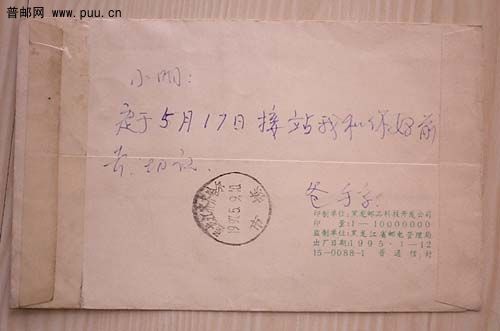 普邮网 www.puu.cn
小明:
定于5月17日接站我和你好前
去.切记.
爸手字:
1997.5.9.20
印制单位:黑龙邮品科技开发公司
印 量:1—10000000
监制单位:黑龙江省邮电管理局
出厂日期:1995·1—12
15-0088-1 普通信封